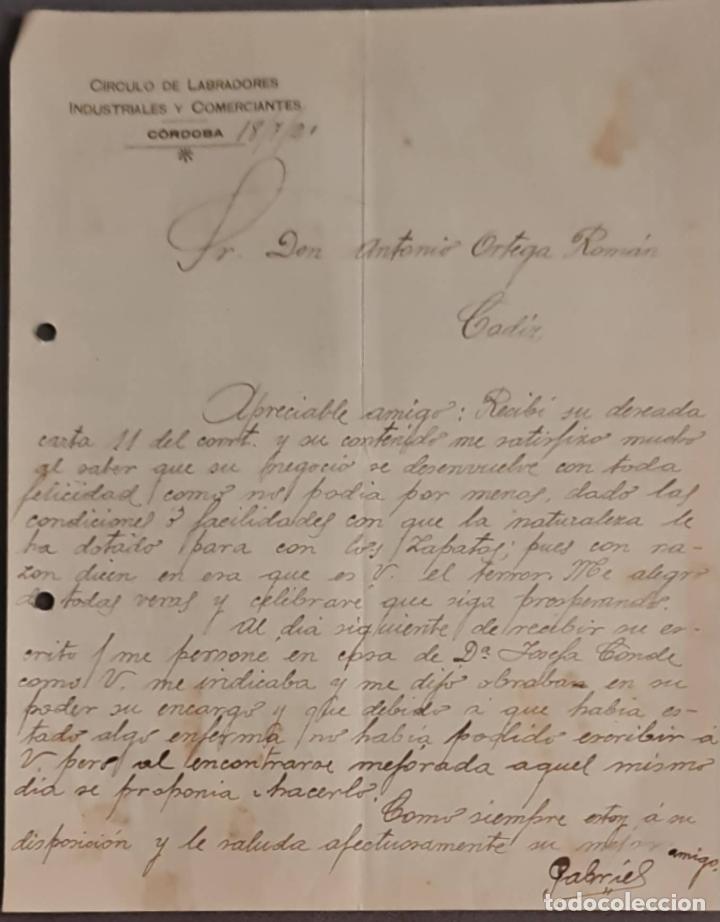 CIRCULO DE LABRADORES
INDUSTRIALES Y COMERCIANTES
CÓRDOBA 18/7/21
Sr. Don Antonio Ortega Román
Cadiz,
Apreciable amigo: Recibí su deseada
carta 11 del corrt. y su contenido me satisfizo mucho
al saber que su negocio se desenvuelve con toda
felicidad como no podia por menos, dado las
condiciones ó facilidades con que la naturaleza le
ha dotado para con los Zapatos; pues con ra-
zon dicen en esa que es V. el terror. Me alegro
de todas veras y celebraré que siga prosperando.
Al dia siguiente de recibir su es-
crito me personé en casa de Dª Josefa Conde
como V. me indicaba y me dijó obraba en su
poder su encargo y que debido á que habia es-
tado algo enferma no habia podido escribir á
V. pero al encontrarse mejorada aquel mismo
dia se proponia hacerlo.
Como siempre estoy á su
disposición y le saluda afectuosamente su mejor amigo.
Gabriel
todocoleccion
todocoleccion.net